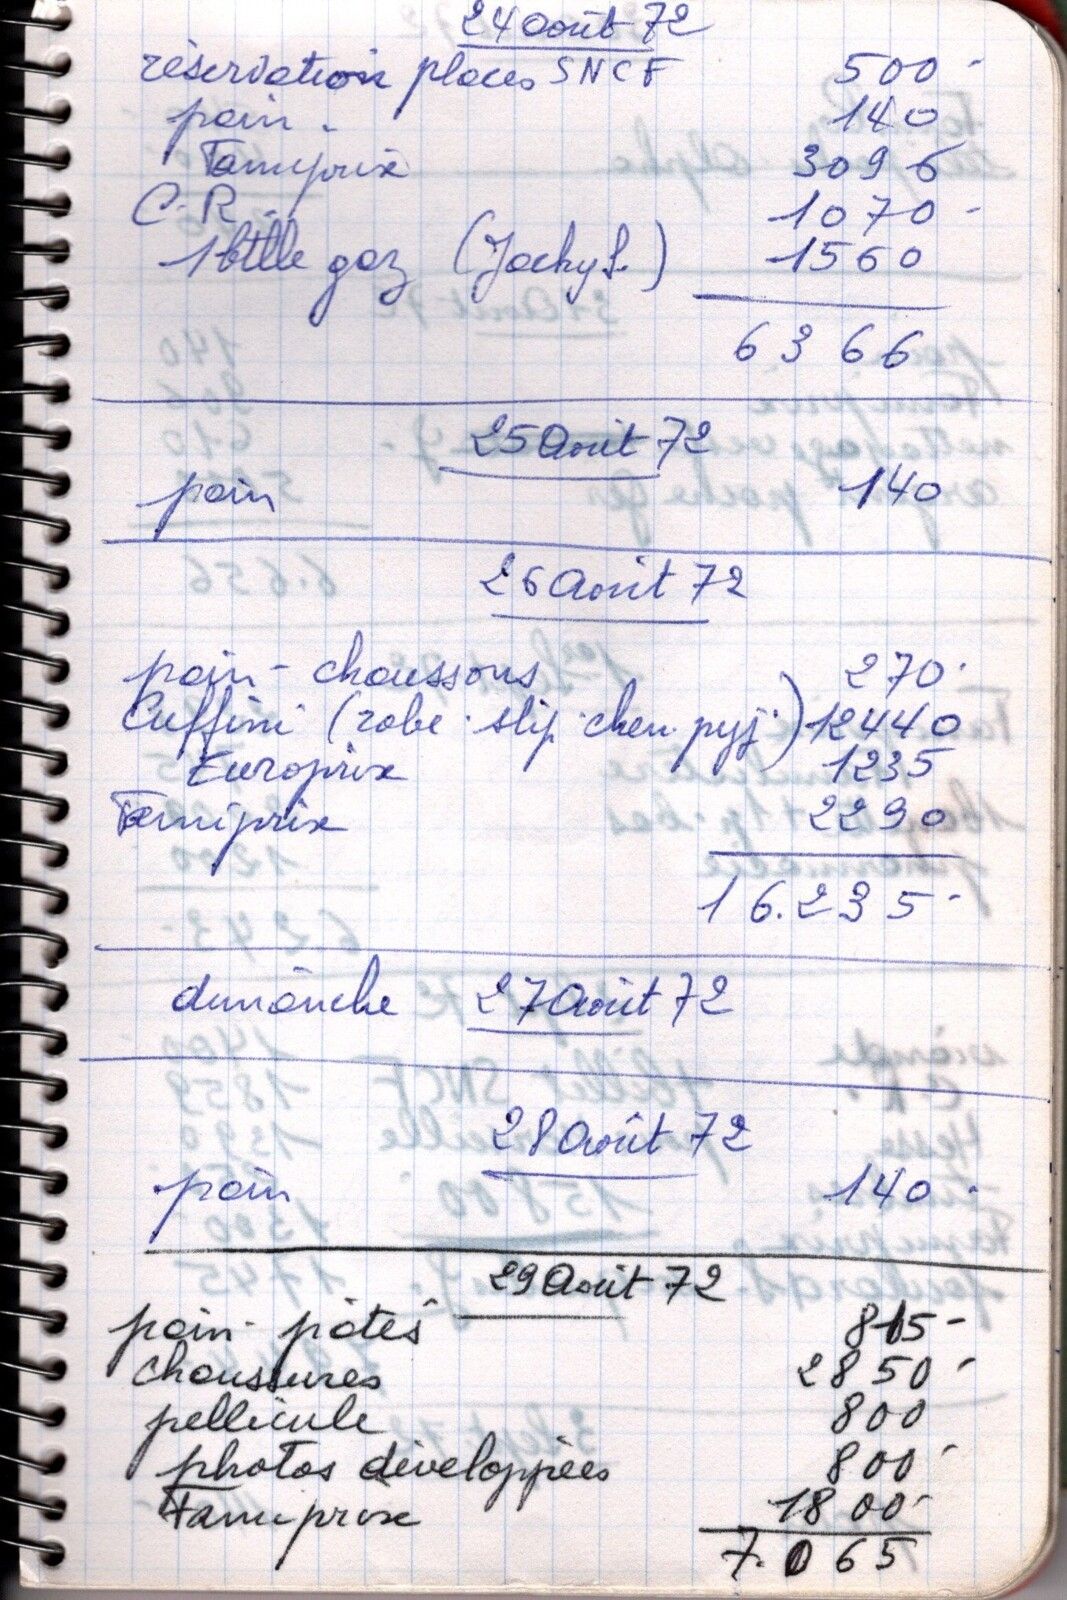 24 août 72
réservation places SNCF 500 -
pain - 140
Famiprix 3096
C.R 1070 -
1 btlle gaz (Jacky S.) 1560
6366
25 Août 72
pain 140
26 Août 72
pain - chaussons 270.
Cuffini (robe. slip. chem. pyj.) 12440
Europrix 1235
Famiprix 2290
16.235 -
dimanche 27 Août 72
28 Août 72
pain 140.
29 Août 72
pain - pâtés 815 -
chaussures 2850 -
pellicule 800
photos développées 800 -
Famiprix 1800 -
7.065